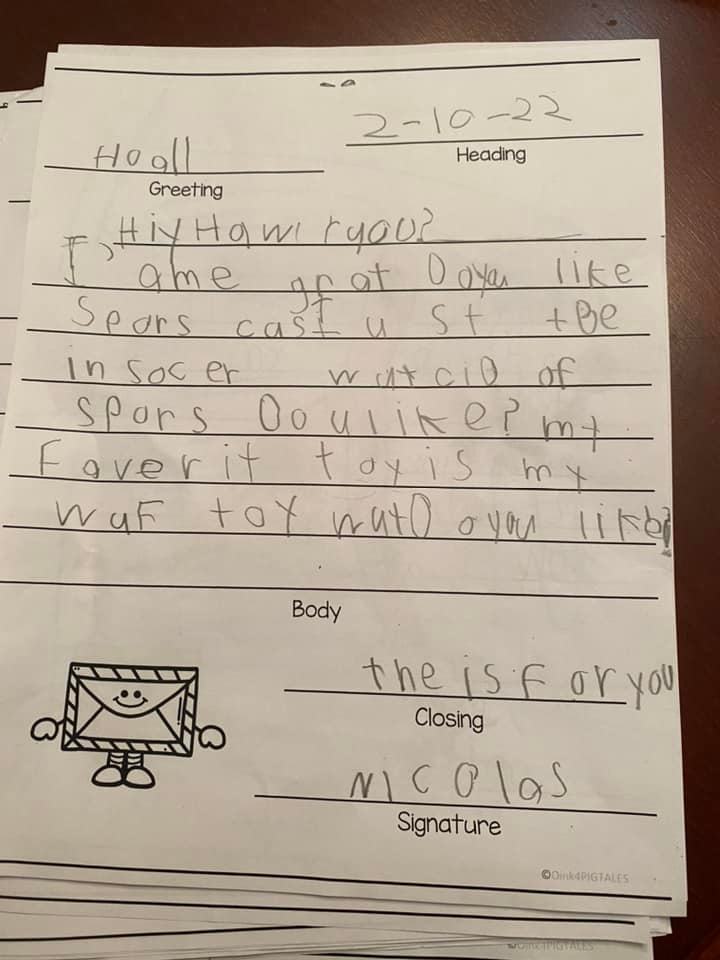 2-10-22
Hoall
Heading
Greeting
Hiy Haw r you?
I, ame grat Do you like
Spors cast u St tBe
in socer wat ciD of
spors Do u like? my
Faverit toy is my
waF toy wat Do you like?
Body
the is For you
Closing
Nicolas
Signature
©Oink4PIGTALES
©Oink4PIGTALES